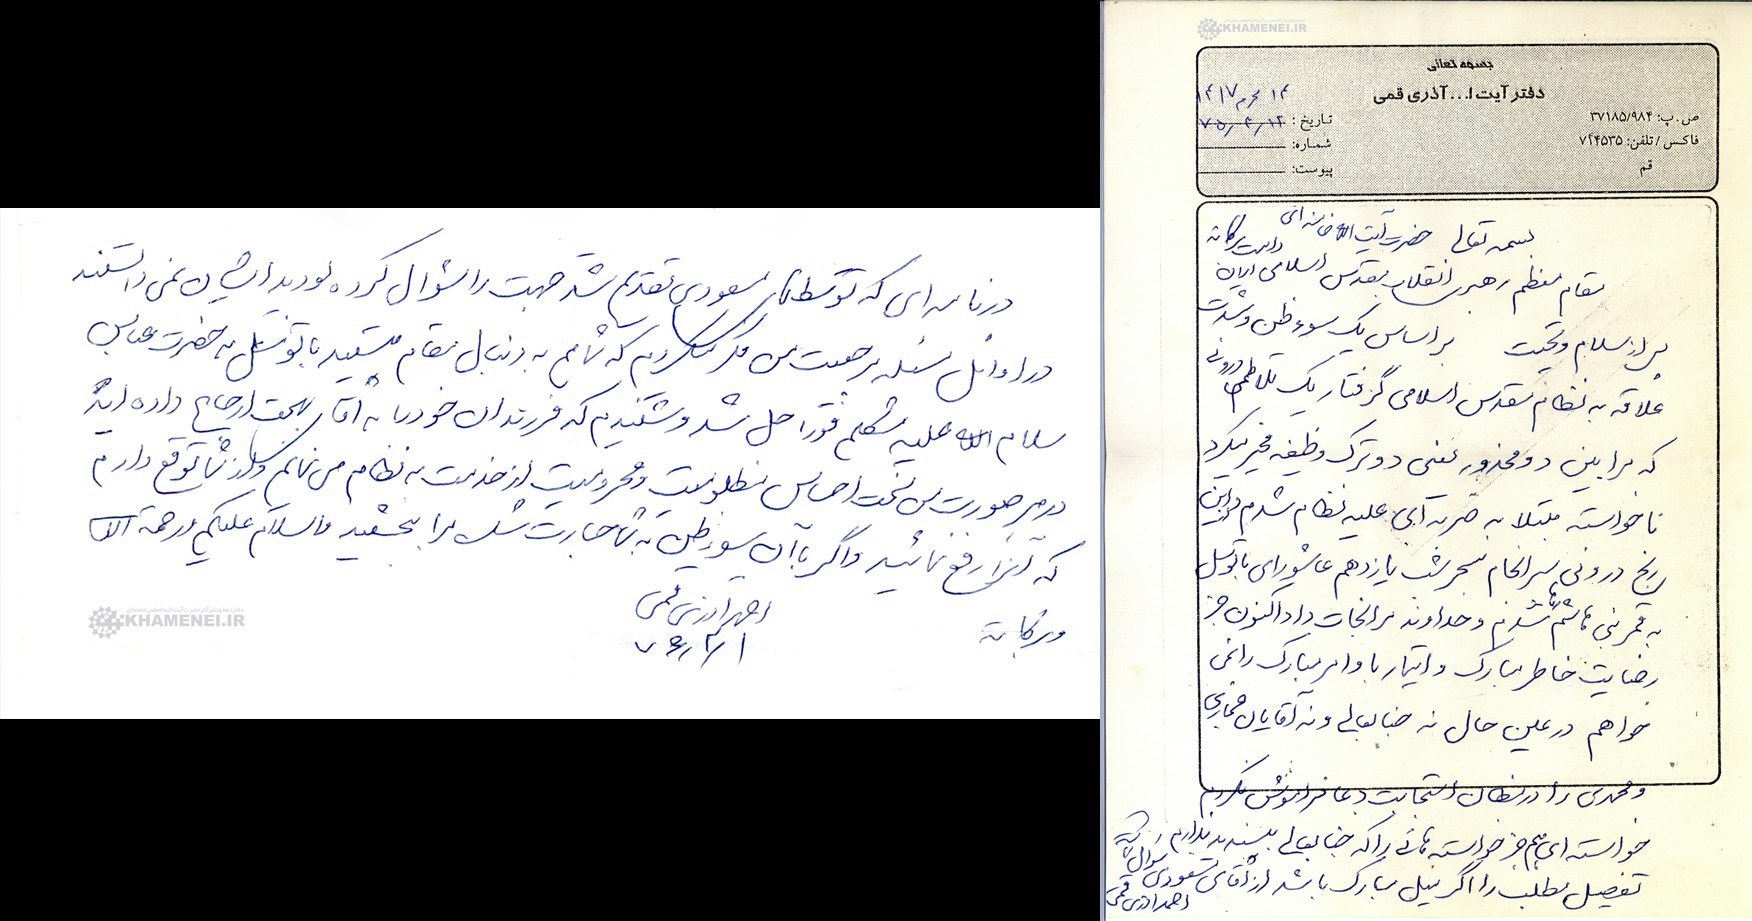 در نامه ای که توسط آقای مسعودی تقدیم شد جهت را سؤال کرده بودید ایشان نمی دانستند
در اوائل مسئله مرجعیت من فکر میکردم که شما هم به دنبال مقام هستید با توسل به حضرت عباس
سلام الله علیه مشکلم فورا حل شد و شنیدم که فرزندان خود را به آقای بهجت ارجاع داده اید
در هر صورت من تحت احساس مظلومیت و محرومیت از خدمت به نظام می نمایم و از شما توقع دارم
که آنرا رفع نمائید و اگر با آن سوءظن به شما جسارت شد مرا ببخشید والسلام علیکم ورحمة الله
وبرکاته
احمد آذری قمی
KHAMENEI.IR
KHAMENEI.IR
بسمه تعالی
دفتر آیت ا... آذری قمی
ص.پ: ۳۷۱۸۵/۹۸۴
فاکس / تلفن: ۷۴۴۵۳۵
قم
۱۴ محرم ۱۴۱۷
تاریخ : ۷۵٫۳٫۱۲
شماره:
پیوست:
بسمه تعالی حضرت آیت الله خامنه ای دامت برکاته
مقام معظم رهبری انقلاب مقدس اسلامی ایران
پس از سلام و تحیت بر اساس یک سوءظن و شدت
علاقه به نظام مقدس اسلامی گرفتار یک تلاطم درونی
که مرا بین دو محذور یعنی دو ترک وظیفه مخیر میکرد
ناخواسته مبتلا به ضربه ای علیه نظام شدم و این
رنج درونی سرانجام سحر شب یازدهم عاشورای با توسل
به قمر بنی هاشم شدم و خداوند مرا نجات داد اکنون جز
رضایت خاطر مبارک و ایتمار با وامر مبارک را نمی
خواهم در عین حال نه جنابعالی و نه آقایان
و محمدی را در مظان استجابت دعا فراموش نکردم
خواسته ای هم جز خواسته هائی را که جنابعالی بپسندید ندارم
تفصیل مطلب را اگر میل مبارک باشد از آقای مسعودی سوال
احمد آذری قمی